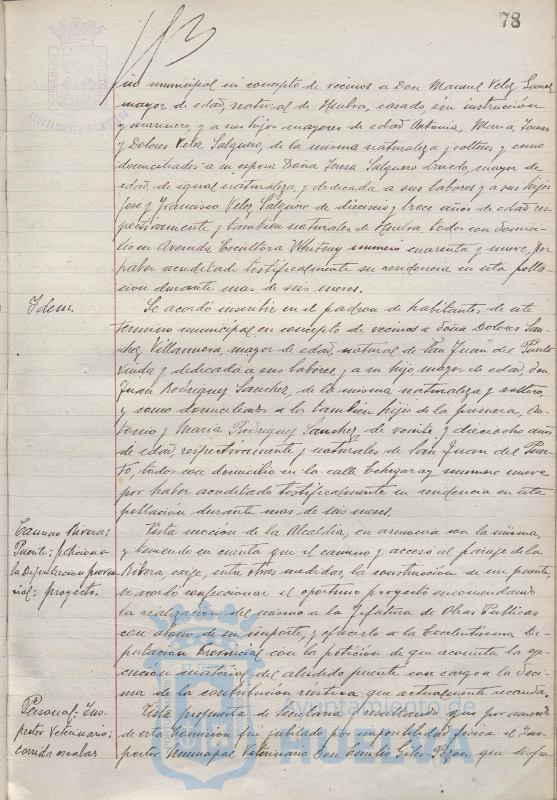 78
AYUNTAMIENTO HUELVA
no municipal en concepto de vecinos a Don Manuel Velez Suarez
mayor de edad, natural de Huelva, casado, sin instruccion
y marinero, y a sus hijos mayores de edad Antonia, Maria, Tomas
y Dolores Velez Salguero, de la misma naturaleza y solteros y como
domiciliados a su esposa Doña Teresa Salguero mayor de
edad, de igual naturaleza, y dedicada a sus labores y a sus hijos
Jose y Francisco Velez Salguero de dieciseis y trece años de edad res-
pectivamente y tambien naturales de Huelva, todos con domici-
lio en Avenida Escultora Whitney numero cuarenta y nueve, por
haber acreditado testificalmente su residencia en esta pobla-
cion durante mas de seis meses.
Idem.
Se acordó inscribir en el padron de habitantes de este
termino municipal en concepto de vecinos a doña Dolores San-
chez Villanueva, mayor de edad, natural de San Juan del Puerto
viuda y dedicada a sus labores, y a su hijo, mayor de edad, don
Juan Rodriguez Sanchez, de la misma naturaleza y soltero,
y como domiciliados a los tambien hijos de la primera, An-
tonio y Maria Rodriguez Sanchez de veinte y dieciocho años
de edad, respectivamente y naturales de San Juan del Puer-
to, todos con domicilio en la calle Echegaray numero nueve
por haber acreditado testificalmente su residencia en esta
poblacion durante mas de seis meses.
Camino Rivera:
Puente: peticion a
la Diputacion provin-
cial: proyecto.
Vista mocion de la Alcaldia, en armonia con la misma,
y teniendo en cuenta que el camino y acceso al paraje de la
Ribera, exige, entre otras medidas, la construccion de un puente
se acordó confeccionar el oportuno proyecto encomendando
la realizacion del mismo a la Jefatura de Obras Publicas
con abono de su importe, y ofrecerlo a la Excelentisima Di-
putacion Provincial con la peticion de que acometa la eje-
cucion material del aludido puente con cargo a la deci-
ma de la contribucion rustica que actualmente recauda.
Personal: Ins-
pector Veterinario:
corrida escalas
Vista propuesta de Secretaria y resultando que por acuerdo
de esta Comision fue jubilado por imposibilidad fisica el Ins-
pector Municipal Veterinario Don Emilio Giles Pezon que disfru-
Ayuntamiento de
HUELVA